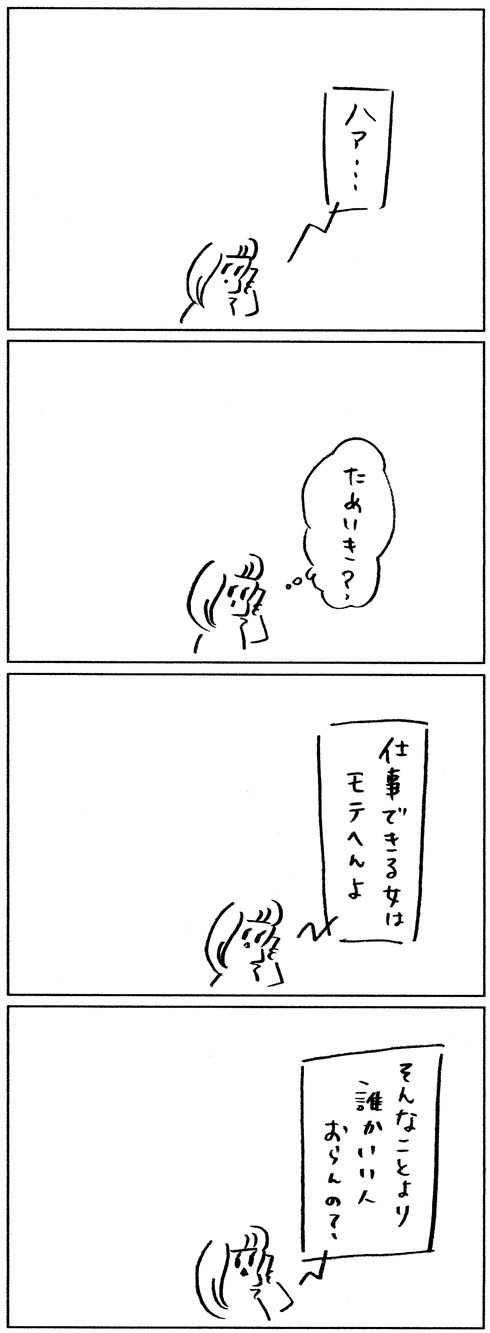 ハァ…
ためいき？
仕事できる女は
モテへんよ
そんなことより
誰かいい人
おらんの？